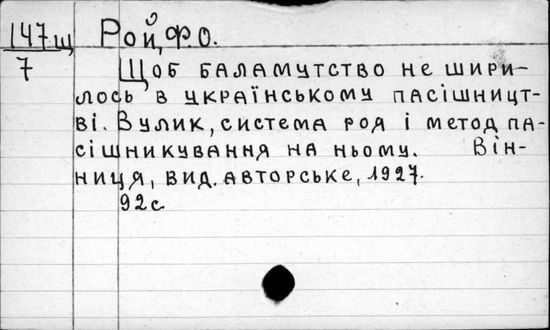 147щ Рой, Ф.О.
7 Щоб баламутство не шири-
лось в українському пасішницт-
ві. Вулик, система роя і метод па-
сішникування на ньому. Він-
ниця, вид. авторське, 1927.
92с.